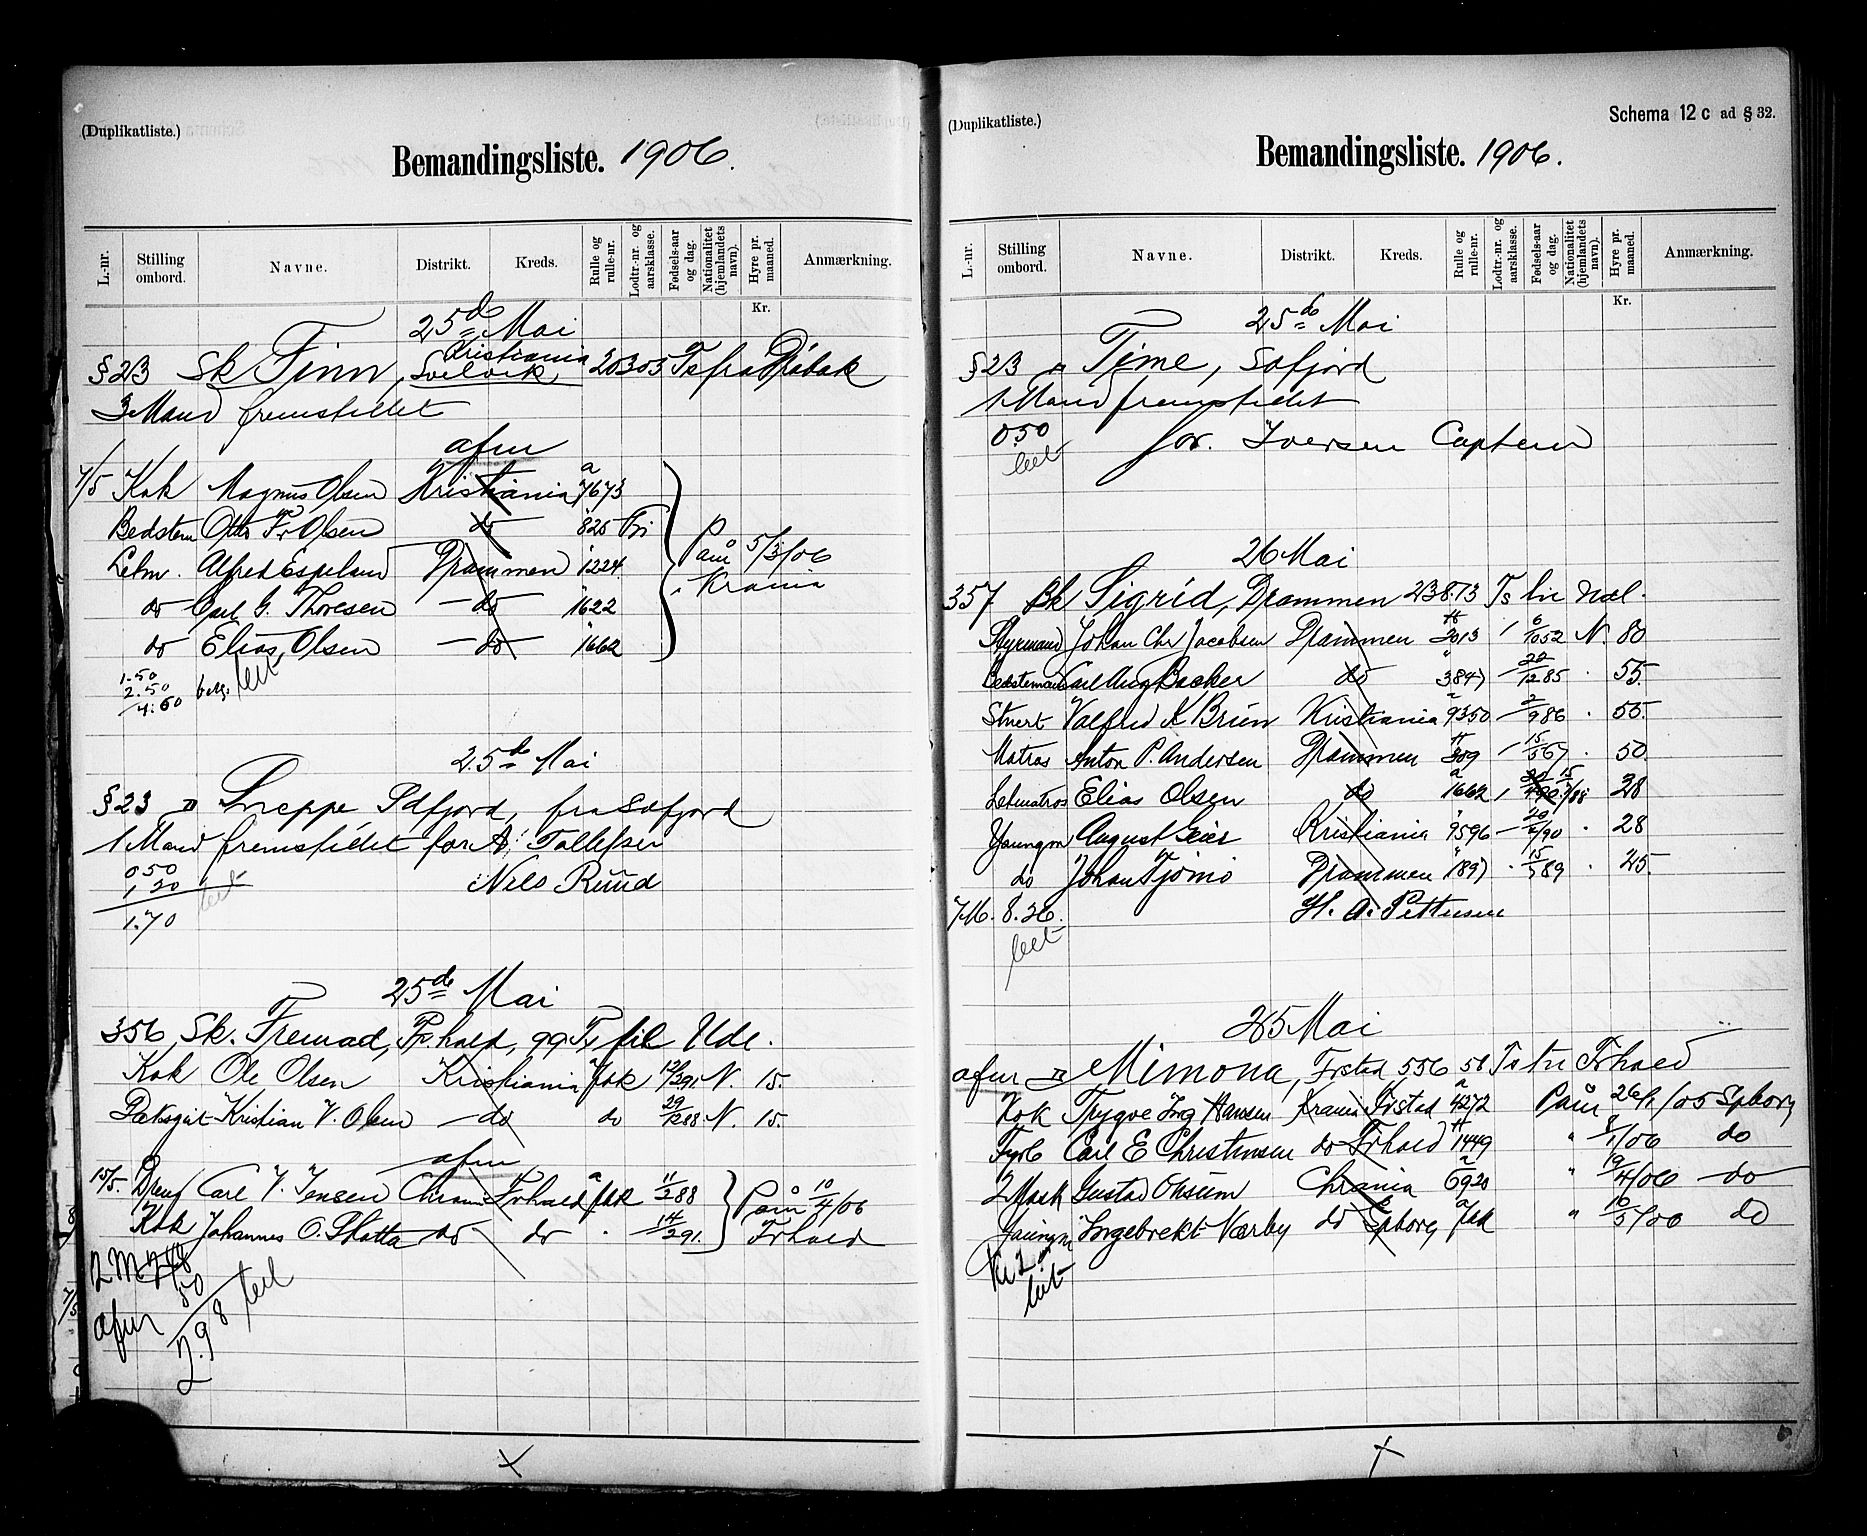 (Duplikatliste.)
Bemandingsliste. 1906.
L.-nr. Stilling ombord. Navne. Distrikt. Kreds. Rulle og rulle-nr. Lodtr.-nr. og aarsklasse. Fødsels-aar og dag. Nationalitet (hjemlandets navn). Hyre pr. maaned. Anmærkning.
Kr.
25de Mai
Kristiania
§ 23 Sk Finn, Svelvik, 203.03 Ts fra Drøbak
3 Mand fremstillet
afm
7/5 Kok Magnus Olsen Kristiania a 7673
Bedstem Otto Fr Olsen do " 825 Fri
Letm. Alfred Espelund Drammen " 1224
do Carl G. Thoresen do " 1622
do Elias Olsen do " 1662
Paam 5/3/06
Krania
1.50
2.50
4.00
25de Mai
§ 23 D Sneppe, Idfjord, fra Sofjord
1 Mand fremstillet for A. Tollefsen
0 50
1,20
1.70
Nils Ruud
25de Mai
356 Sk. Fremad, Frhald, 99 Ts til Udl.
Kok Ole Olsen Kristiania fak 12/3 91 N. 15.
Dæksgut Kristian V. Olsen do do 29/2 88 N. 15.
afm
15/5. Dreng Carl V. Jensen Chrania Frhald a fak 11/2 88
Kok Johannes O. Slatta do do " 14/2 91.
Paam 10/4/06
Frhald
2 M
afm
2.98
(Duplikatliste.)
Schema 12 c ad § 32.
Bemandingsliste. 1906.
L.-nr. Stilling ombord. Navne. Distrikt. Kreds. Rulle og rulle-nr. Lodtr.-nr. og aarsklasse. Fødsels-aar og dag. Nationalitet (hjemlandets navn). Hyre pr. maaned. Anmærkning.
Kr.
25de Mai
§ 23 D Time, Sofjord
1 Mand fremstillet
0.50
for. Iversen Captein
26 Mai
357 Bk Sigrid, Drammen 238.73 Ts til Udl.
Styrmand Johan Chr Jacobsen Drammen H 3013 6/10 52 N. 80
Bedstemand Carl Aug Backer do " 3847 22/12 85 . 55.
Stuert Valfred K Brun Kristiania a 9350 2/9 86 . 55.
Matros Anton P. Andersen Drammen H 309 15/5 67 . 50.
Letmatros Elias Olsen do a 1662 15/7 88 38
Youngm August Geier Kristiania " 9596 20/2/90 . 28
do Johan Tjømø Drammen " 1897 15/3 89 . 25.
7 M. 8.26.
H. A. Pettersen
25 Mai
afm D Mimona, Frstad 556 58 Ts til Frhald
Kok Trygve Ing Hansen Krania Frstad a 4272 Paam 26/1/05 Spborg
Fyrb Carl E Christensen do Frhald H 1449 " 8/1/06 do
2 Mask Gustav Ohsum Chrania a 6920 " 19/4/06 do
Youngm Ingebrekt Værby do Spborg a fak " 10/5/06 do
Kr 2